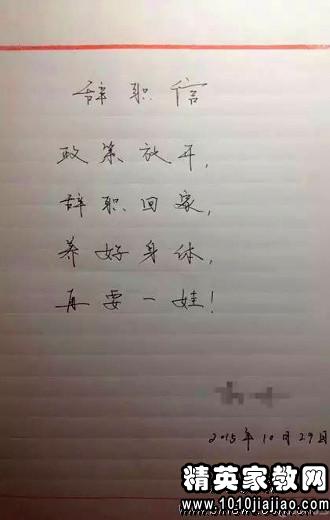 辞职信
政策放开,
辞职回家,
养好身体,
再要一娃!
2015年10月29日
精英家教网
www.1010jiajiao.com